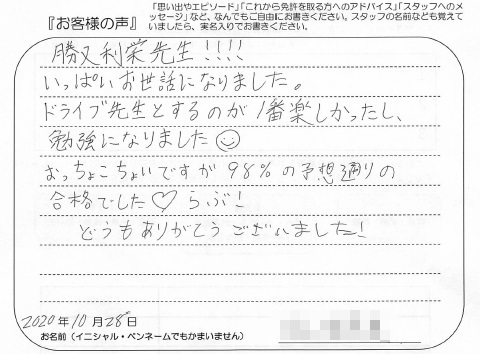 『お客様の声』
「思い出やエピソード」「これから免許を取る方へのアドバイス」「スタッフへのメ
ッセージ」など、なんでもご自由にお書きください。スタッフの名前なども覚えて
いましたら、実名入りでお書きください。
勝又利栄先生!!!!
いっぱいお世話になりました。
ドライブ先生とするのが1番楽しかったし、
勉強になりました☺
おっちょこちょいですが98%の予想通りの
合格でした♡らぶ!
どうもありがとうございました!
2020年10月28日
お名前(イニシャル・ペンネームでもかまいません)